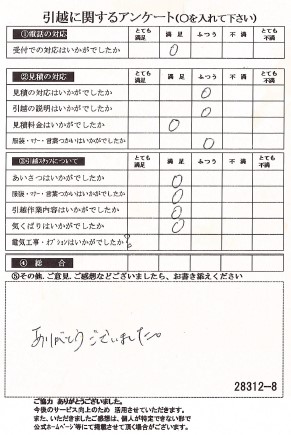 引越に関するアンケート(○を入れて下さい)
①電話の対応 とても満足 満足 ふつう 不満 とても不満
受付での対応はいかがでしたか ○
②見積の対応 とても満足 満足 ふつう 不満 とても不満
見積の対応はいかがでしたか ○
引越の説明はいかがでしたか ○
見積料金はいかがでしたか ○
服装・マナー・言葉つかいはいかがでしたか ○
③引越スタッフについて とても満足 満足 ふつう 不満 とても不満
あいさつはいかがでしたか ○
服装・マナー・言葉つかいはいかがでしたか ○
引越作業内容はいかがでしたか ○
気くばりはいかがでしたか ○
電気工事・オプションはいかがでしたか
④ 総合
⑤その他、ご意見、ご感想などございましたら、お書き添えください
ありがとうございました。
28312-8
ご協力 ありがとうございました。
今後のサービス向上のため 活用させていただきます。
また、いただきましたご感想は、個人が特定できない形で
公式ホームページ等にて掲載させて頂く場合がございます。